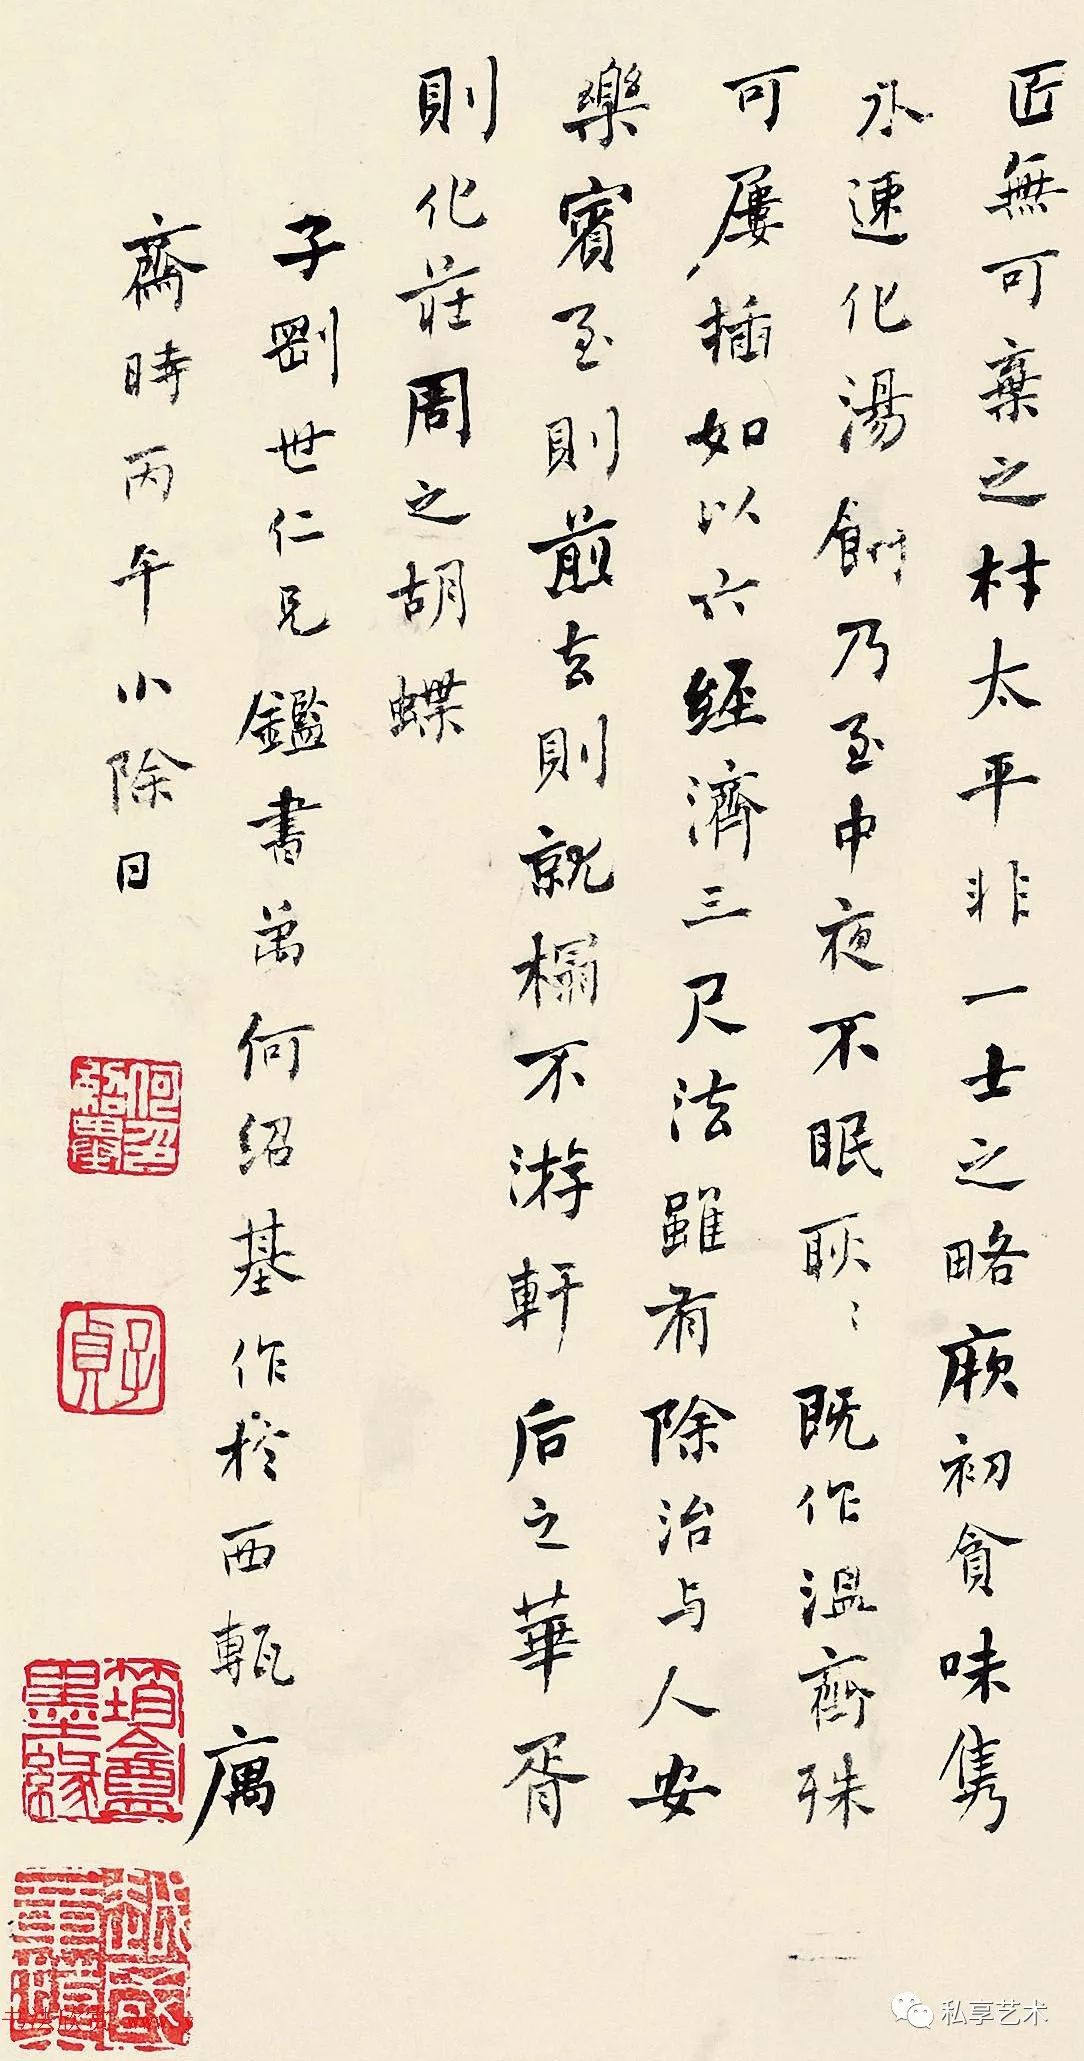 匠無可棄之材太平非一士之略厥初貪味雋
永速化湯餅乃至中夜不眠耿〻既作溫齊殊
可屢插如以六經濟三尺法雖有除治与人安
樂賓至則煎去則就榻不游軒后之華胥
則化莊周之胡蝶
子剛世仁兄鑑書蕅何紹基作於西甎寓
齋時丙午小除日
何紹基
子貞
墨緣
私享艺术
书法欣赏